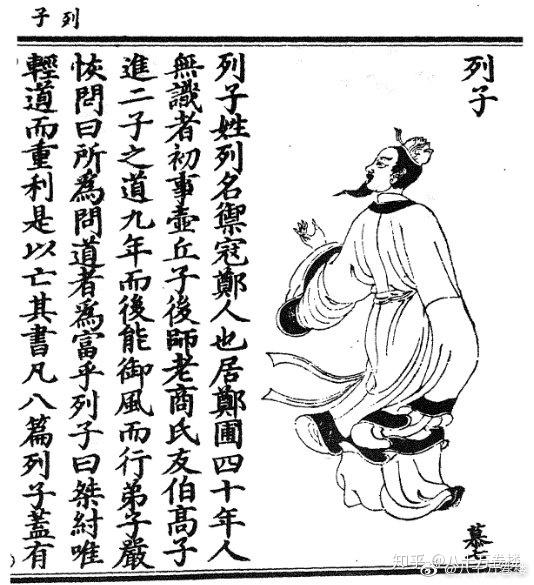 列子
列子
列子姓列名禦寇鄭人也居鄭圃四十年人
無識者初事壺丘子後師老商氏友伯高子
進二子之道九年而後能御風而行弟子嚴
恢問曰所為問道者為富乎列子曰桀紂唯
輕道而重利是以亡其書凡八篇列子蓋有
知乎